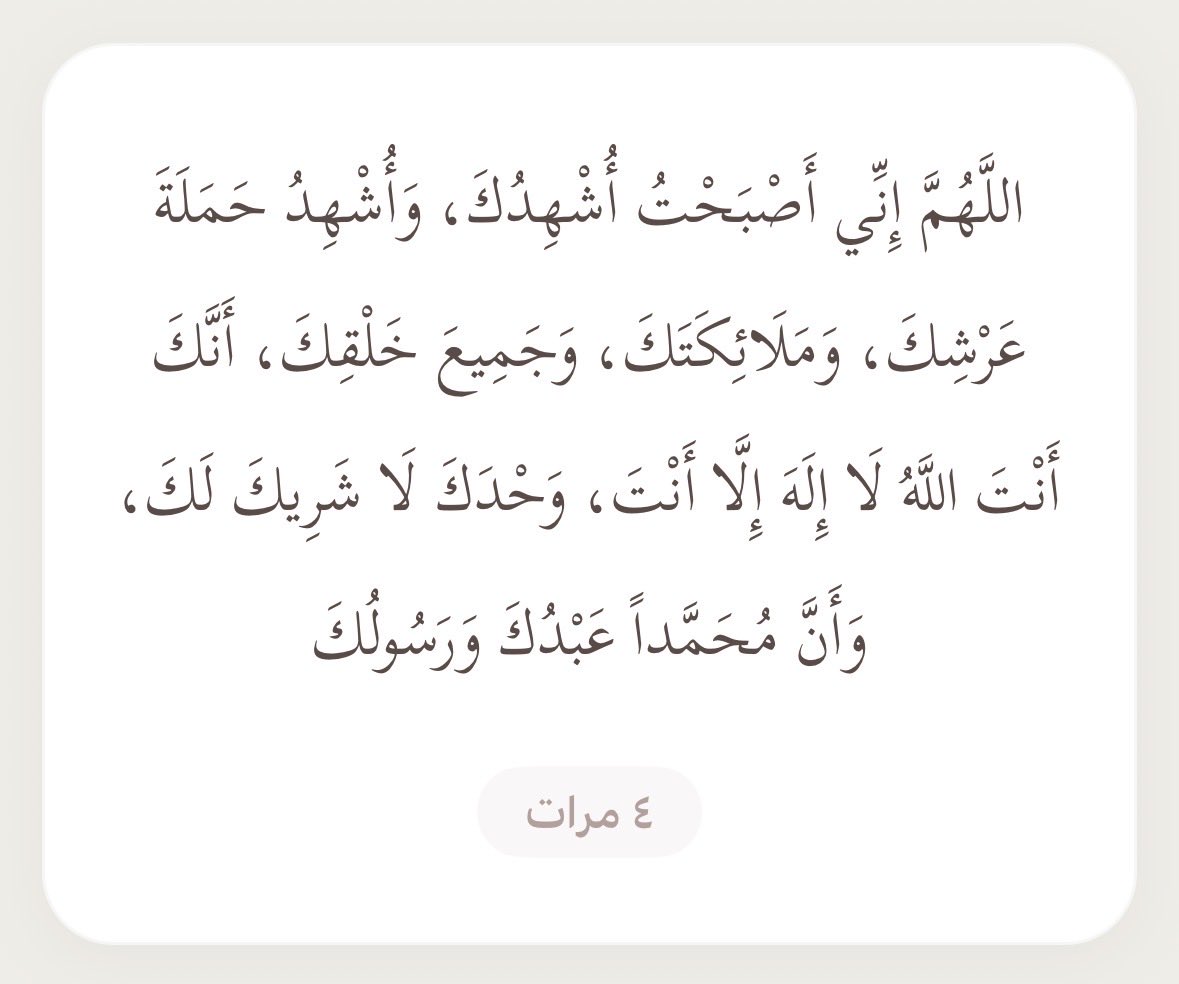 اللَّهُمَّ إِنِّي أَصْبَحْتُ أُشْهِدُكَ، وَأُشْهِدُ حَمَلَةَ
عَرْشِكَ، وَمَلَائِكَتَكَ، وَجَمِيعَ خَلْقِكَ، أَنَّكَ
أَنْتَ اللَّهُ لَا إِلَهَ إِلَّا أَنْتَ، وَحْدَكَ لَا شَرِيكَ لَكَ،
وَأَنَّ مُحَمَّداً عَبْدُكَ وَرَسُولُكَ
٤ مرات